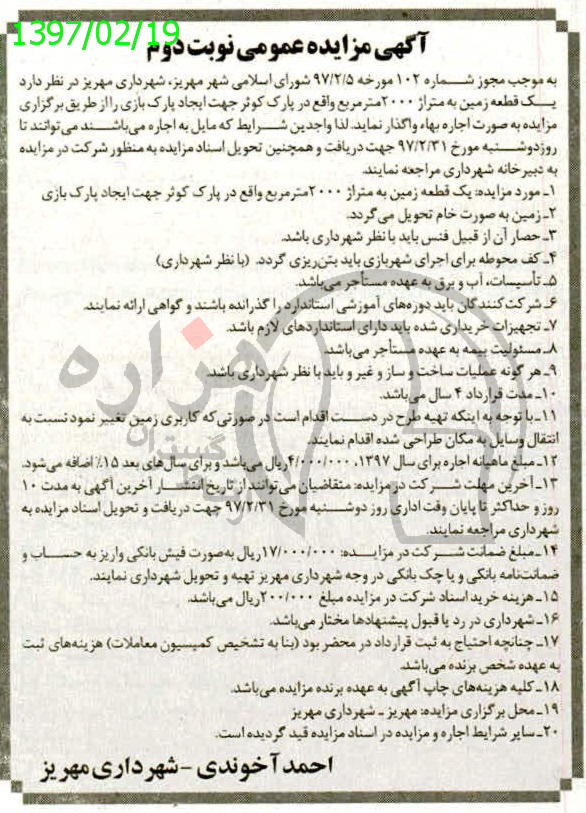 1397/02/19
آگهی مزایده عمومی نوبت دوم
به موجب مجوز شـــماره ۱۰۲ مورخه ۹۷/۲/۵ شورای اسلامی شهر مهریز، شهرداری مهریز در نظر دارد
یـک قطعه زمین به متراژ ۲۰۰۰مترمربع واقع در پارک کوثر جهت ایجاد پارک بازی را از طریق برگزاری
مزایده به صورت اجاره بهاء واگذار نماید. لذا واجدین شـــرایط که مایل به اجاره می‌باشـــند می‌توانند تا
روزدوشـــنبه مورخ ۹۷/۲/۳۱ جهت دریافت و همچنین تحویل اسناد مزایده به منظور شرکت در مزایده
به دبیرخانه شهرداری مراجعه نمایند.
۱ـ مورد مزایده: یک قطعه زمین به متراژ ۲۰۰۰مترمربع واقع در پارک کوثر جهت ایجاد پارک بازی
۲ـ زمین به صورت خام تحویل می‌گردد.
۳ـ حصار آن از قبیل فنس باید با نظر شهرداری باشد.
۴ـ کف محوطه برای اجرای شهربازی باید بتن‌ریزی گردد. (با نظر شهرداری)
۵ـ تأسیسات، آب و برق به عهده مستأجر می‌باشد.
۶ـ شرکت‌کنندگان باید دوره‌های آموزشی استاندارد را گذرانده باشند و گواهی ارائه نمایند.
۷ـ تجهیزات خریداری شده باید دارای استانداردهای لازم باشد.
۸ـ مسئولیت بیمه به عهده مستأجر می‌باشد.
۹ـ هر گونه عملیات ساخت و ساز و غیر و باید با نظر شهرداری باشد.
۱۰ـ مدت قرارداد ۴ سال می‌باشد.
۱۱ـ با توجه به اینکه تهیه طرح در دســـت اقدام است در صورتی که کاربری زمین تغییر نمود نسبت به
انتقال وسایل به مکان طراحی شده اقدام نمایند.
۱۲ـ مبلغ ماهیانه اجاره برای سال ۱۳۹۷، ۴/۰۰۰/۰۰۰ریال می‌باشد و برای سال‌های بعد ۱۵٪ اضافه می‌شود.
۱۳ـ آخرین مهلت شـــرکت در مزایده: متقاضیان می‌توانند از تاریخ انتشـــار آخرین آگهی به مدت ۱۰
روز و حداکثر تا پایان وقت اداری روز دوشـــنبه مورخ ۹۷/۲/۳۱ جهت دریافت و تحویل اسناد مزایده به
شهرداری مراجعه نمایند.
۱۴ـ مبلغ ضمانت شـــرکت در مزایـــده: ۱۷/۰۰۰/۰۰۰ریال به‌صورت فیش بانکی واریز به حســـاب و
ضمانت‌نامه بانکی و یا چک بانکی در وجه شهرداری مهریز تهیه و تحویل شهرداری نمایند.
۱۵ـ هزینه خرید اسناد شرکت در مزایده مبلغ ۲۰۰/۰۰۰ریال می‌باشد.
۱۶ـ شهرداری در رد یا قبول پیشنهادها مختار می‌باشد.
۱۷ـ چنانچه احتیاج به ثبت قرارداد در محضر بود (بنا به تشخیص کمیسیون معاملات) هزینه‌های ثبت
به عهده شخص برنده می‌باشد.
۱۸ـ کلیه هزینه‌های چاپ آگهی به عهده برنده مزایده می‌باشد.
۱۹ـ محل برگزاری مزایده: مهریز ـ شهرداری مهریز
۲۰ـ سایر شرایط اجاره و مزایده در اسناد مزایده قید گردیده است.
احمد آخوندی - شهرداری مهریز
هزاره
گستران